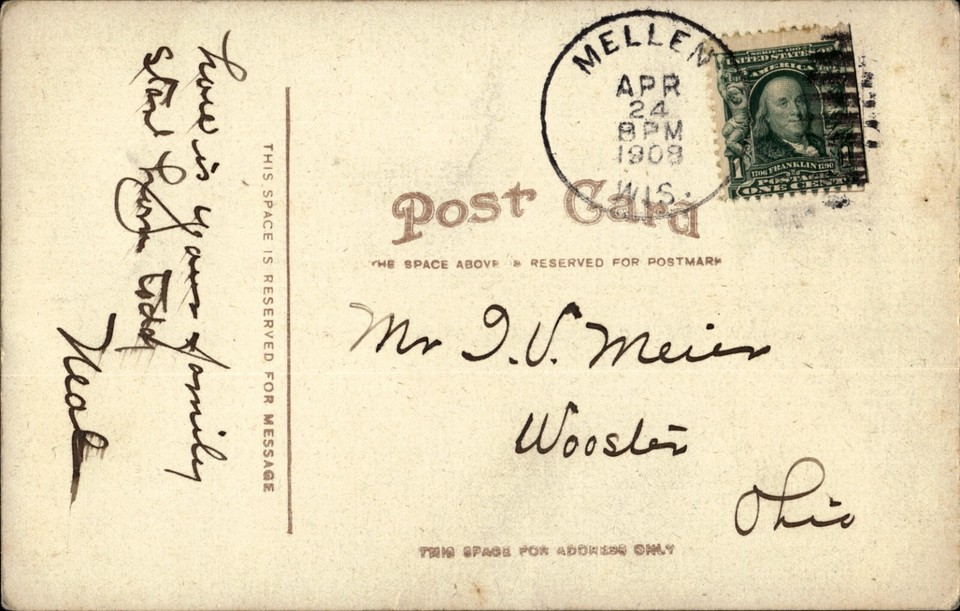 MELLEN
APR
24
8 PM
1908
WIS.
SERIES 1902
UNITED STATES OF
AMERICA
1706 FRANKLIN 1790
1
POSTAGE
ONE CENT
Post Card
THE SPACE ABOVE IS RESERVED FOR POSTMARK
how is your family
start today
Neal
THIS SPACE IS RESERVED FOR MESSAGE
Mr I. V. Meier
Wooster
Ohio
THIS SPACE FOR ADDRESS ONLY